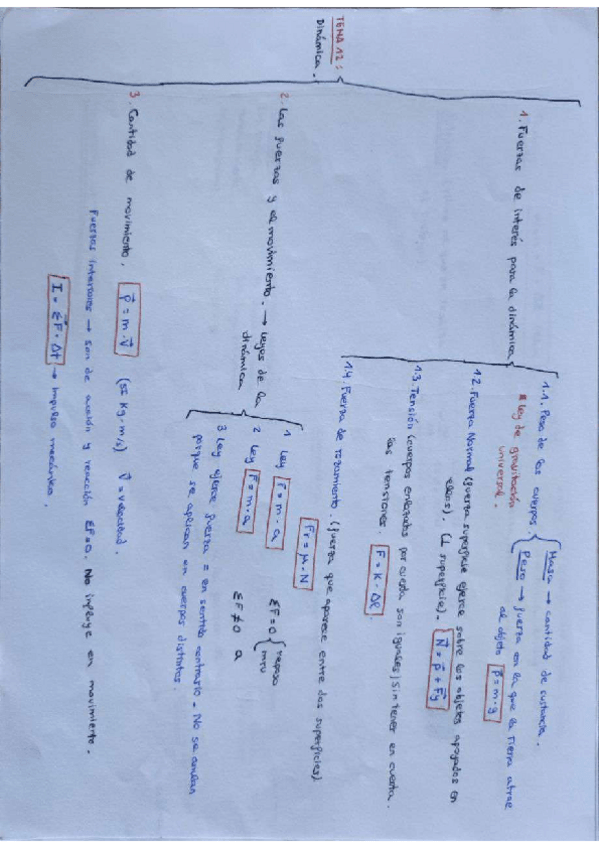 TEMA 12:
Dinámica.
1. Fuerzas de interés para la dinámica
1.1. Peso de los cuerpos. { Masa → cantidad de sustancia.
Peso → fuerza con la que la Tierra atrae
al objeto p⃗ = m·g
* Ley de gravitación
universal.
1.2. Fuerza Normal (fuerza superficie ejerce sobre los objetos apoyados en
ellas). (⊥ superficie). N⃗ = p⃗ + F⃗y
1.3. Tensión (cuerpos enlazados por cuerda son iguales) sin tener en cuenta
las tensiones. F = K·Δl.
1.4. Fuerza de rozamiento. (fuerza que aparece entre dos superficies)
Fr = μ·N
2. Las fuerzas y el movimiento. → leyes de la
dinámica
1 Ley F⃗ = m·a ΣF = 0 { reposo
mru
2 Ley F = m·a ΣF ≠ 0 a
3 Ley ejerce fuerza = en sentido contrario. No se anulan
porque se aplican en cuerpos distintos.
3. Cantidad de movimiento. p⃗ = m·v⃗ (SI Kg·m/s) v⃗ = velocidad.
Fuerzas interiores → son de acción y reacción ΣF=0. No influye en movimiento.
I = ΣF⃗·Δt → impulso mecánico.